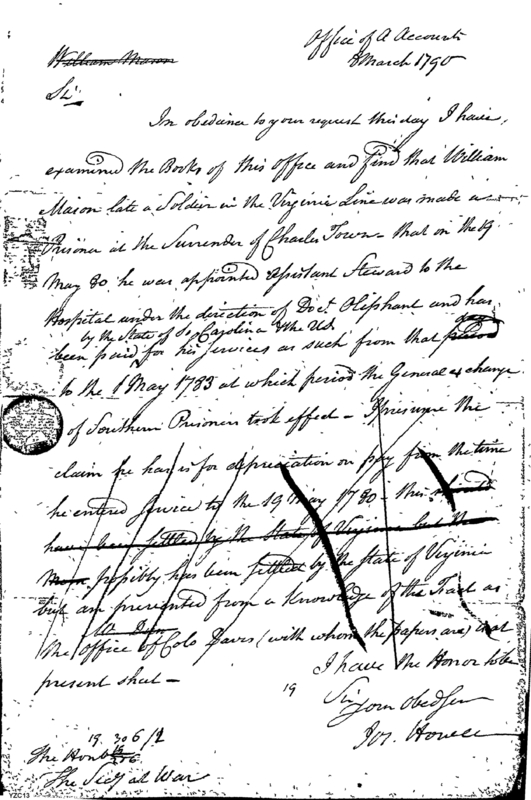 Office of A Accounts
8 March 1790
William Mason
Sir
In obedance to your request this day I have,
examined the Books of this office and find that William
Mason late a Soldier in the Virginia Line was made a
Prisoner at the Surrender of Charles Town - that on the 19
May 80 he was appointed Assistant Steward to the
Hospital under the direction of Doct. Oliphant and has
by the State of So Carolina & the U.S.
been paid for his services as such from that period
to the 1 May 1783 at which period the General exchange
of Southern Prisoners took effect - I presume the
claim he has is for depreciation on pay from the time
he entered service to the 19 May 1780 - this should
have been settled by the State of Virginia but the
possibly has been settled by the State of Virginia
but am prevented from a knowledge of the Fact as
the office of Colo Davis (with whom the papers are) is at
present shut -
I have the Honor to be
Sir
Your Obed Ser
Jos. Howell
19
19 306/1
The Honble
The Secy at War
YZC13